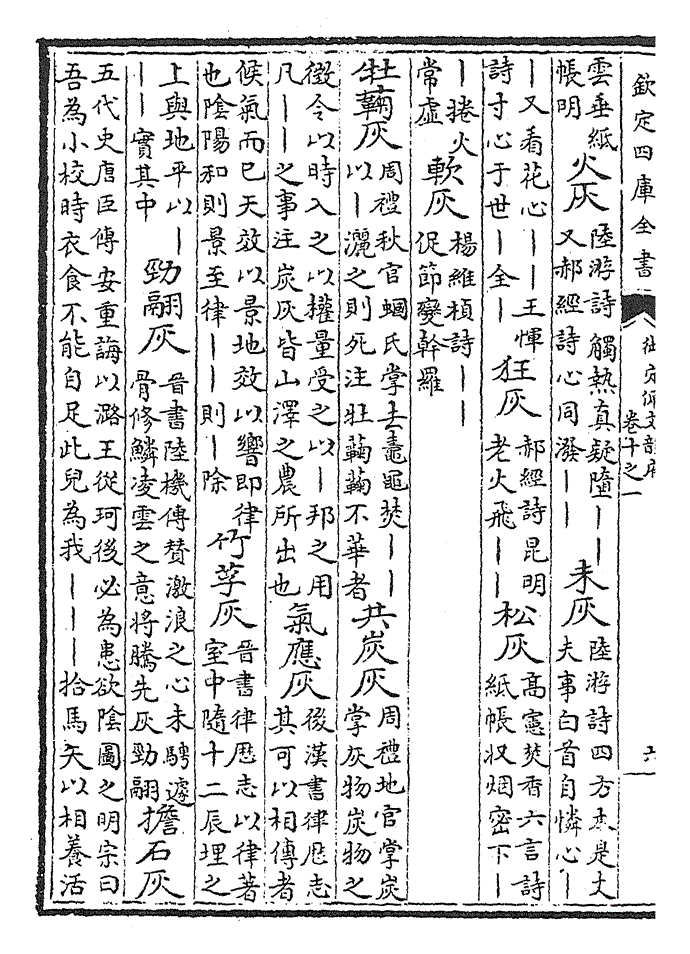 欽定四庫全書
御定佩文韻府
卷十之一
六
雲垂紙
帳明
火灰
陸游詩觸熱真疑墮——
又郝經詩心同潑——
未灰
陸游詩四方本是丈
夫事白首自憐心—
—又看花心——王惲
詩于心于世—全—
狂灰
郝經詩昆明
老火飛——
松灰
高憲焚香六言詩
紙帳収烟密下—
—捲火
常虛
軟灰
楊維楨詩——
促節變幹羅
牡蘜灰
周禮秋官蟈氏掌去鼃黽焚——
以—灑之則死注牡蘜蘜不華者
共炭灰
周禮地官掌炭
掌灰物炭物之
徵令以時入之以權量受之以—邦之用
凡——之事注炭灰皆山澤之農所出也
氣應灰
後漢書律厯志
其可以相傳者
候氣而已天效以景地效以響即律
也陰陽和則景至律——則—除
竹莩灰
晉書律厯志以律著
室中隨十二辰埋之
上與地平以—
——實其中
勁翮灰
晉書陸機傳贊激浪之心未騁遽
骨修鱗凌雲之意將騰先灰勁翮
擔石灰
五代史唐臣傳安重誨以潞王從珂後必為患欲陰圖之明宗曰
吾為小校時衣食不能自足此兒為我———拾馬矢以相養活